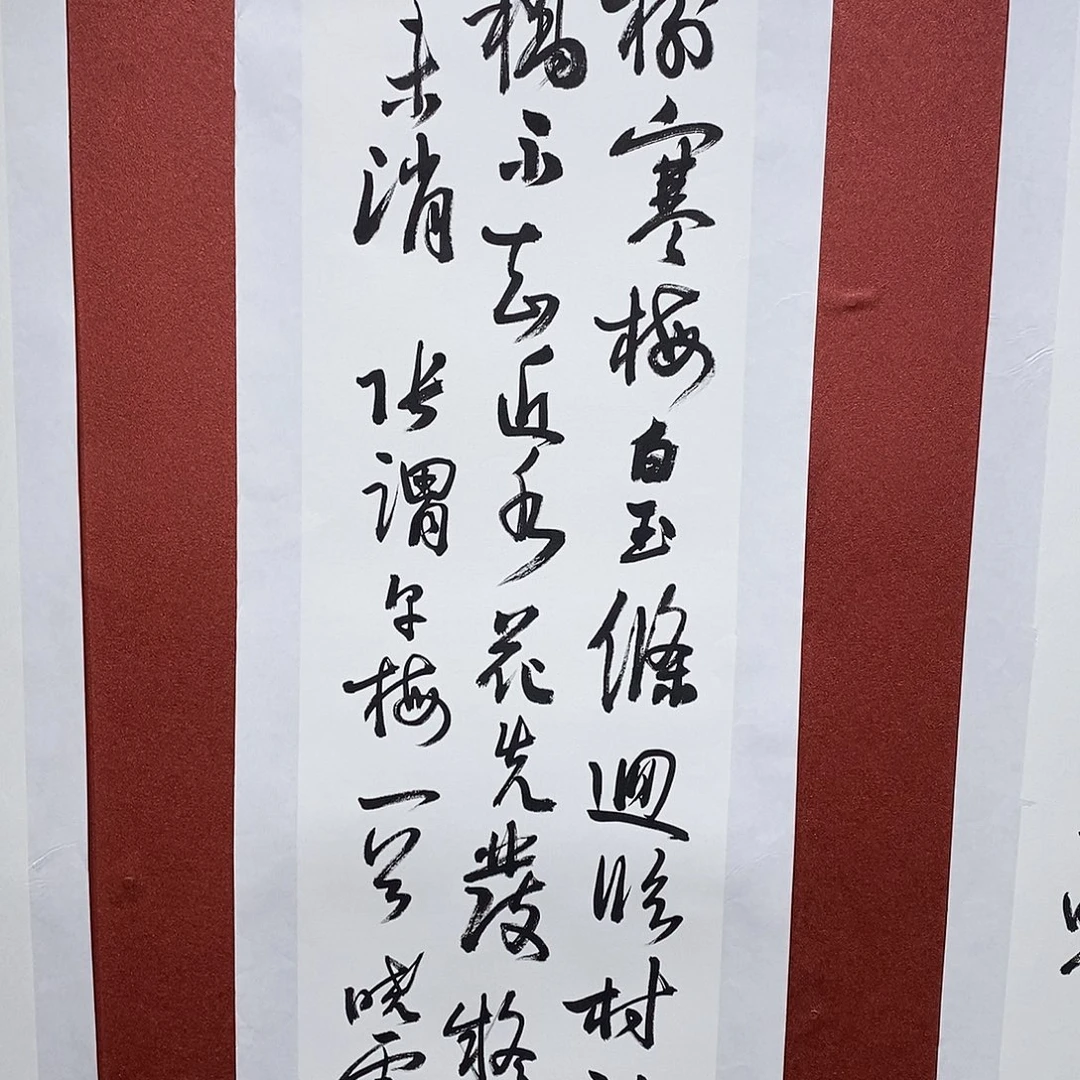 樹寒梅白玉條迴臨村
橋不知近水花先發
未消 張謂早梅一首 曉